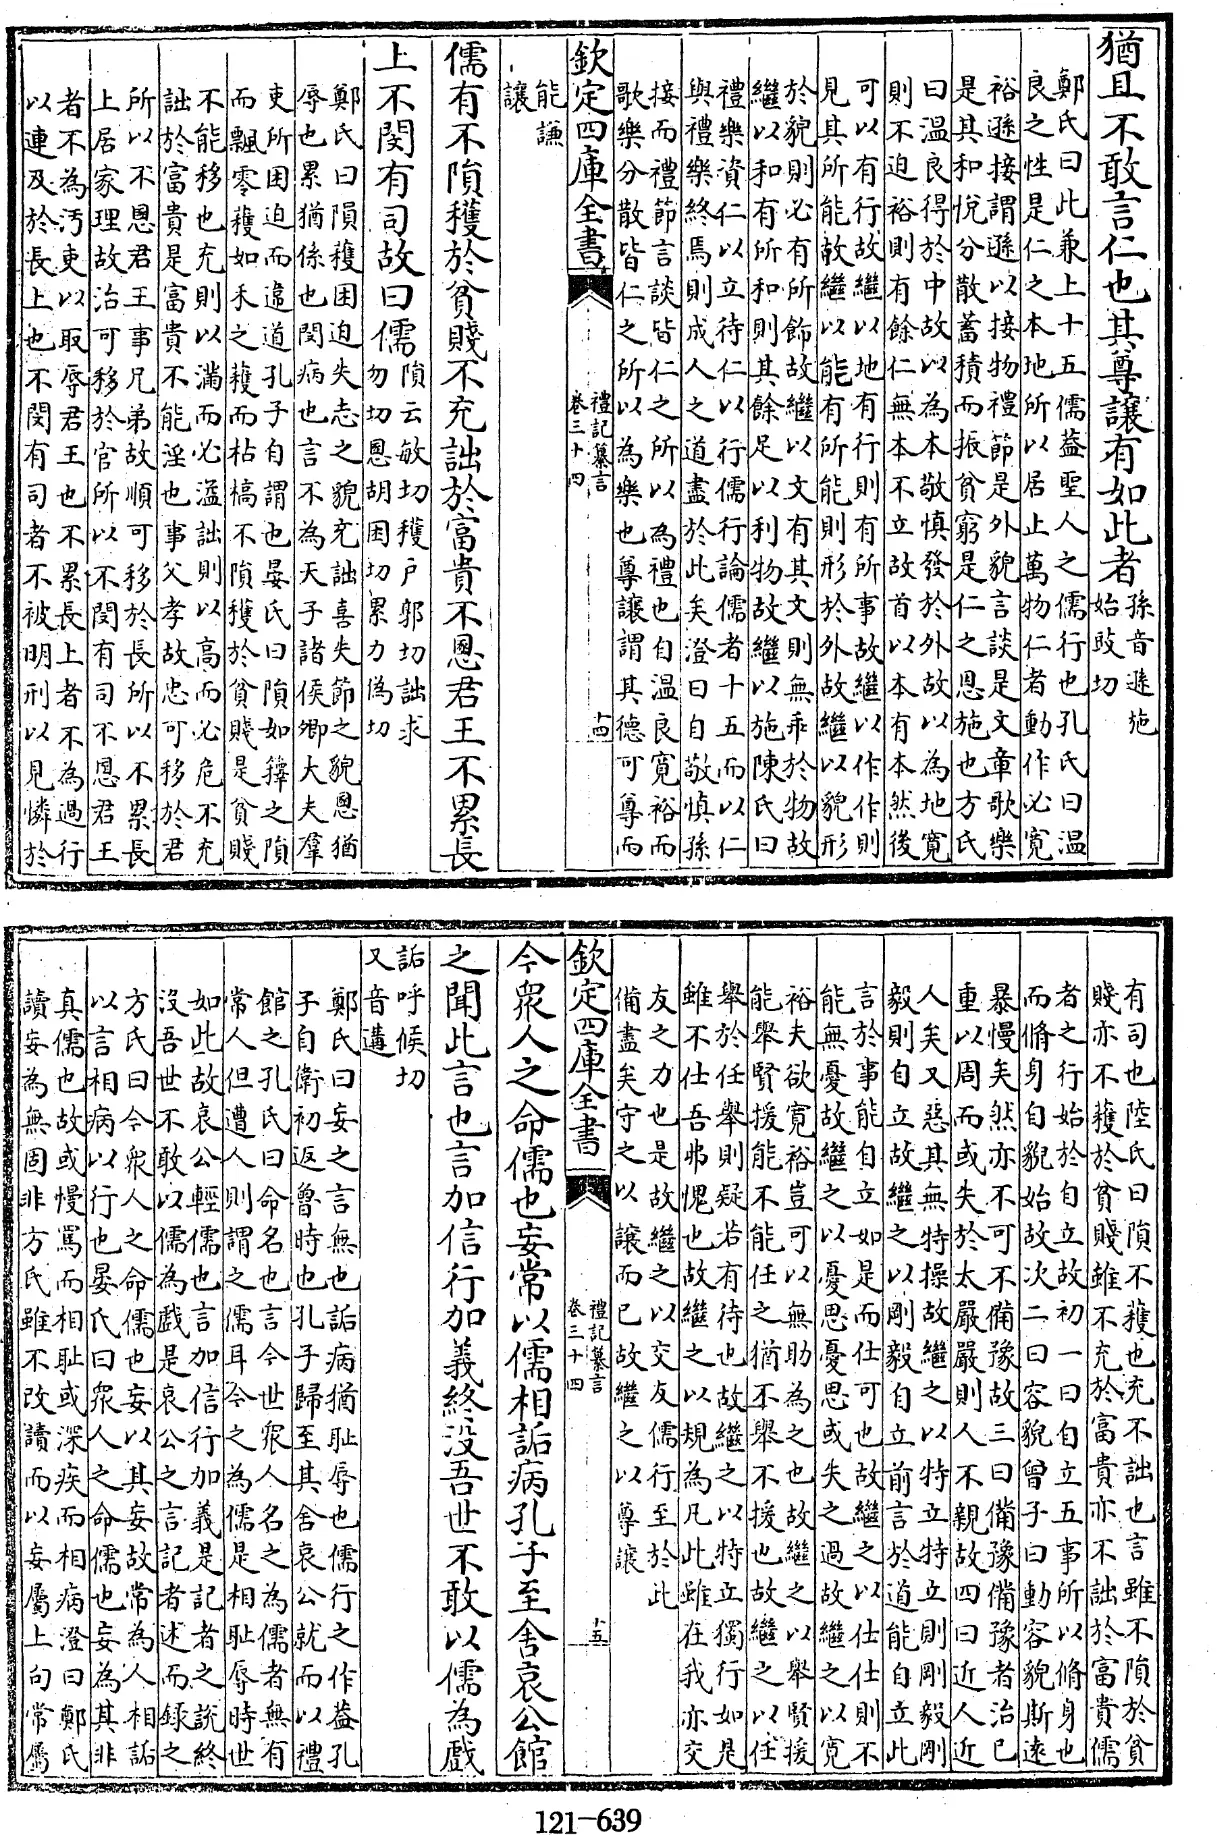 猶且不敢言仁也其尊讓有如此者孫音遜施始豉切
鄭氏曰此兼上十五儒葢聖人之儒行也孔氏曰溫
良之性是仁之本地所以居止萬物仁者動作必寛
裕遜接謂遜以接物禮節是外貌言談是文章歌樂
是其和悅分散蓄積而振貧窮是仁之恩施也方氏
曰溫良得於中故以為本敬慎發於外故以為地寛
則不迫裕則有餘仁無本不立故首以本有本然後
可以有行故繼以地有行則有所事故繼以作作則
見其所能故繼以能有所能則形於外故繼以貌形
於貌則必有所飾故繼以文有其文則無乖於物故
繼以和有所和則其餘足以利物故繼以施陳氏曰
禮樂資仁以立待仁以行儒行論儒者十五而以仁
與禮樂終焉則成人之道盡於此矣澄曰自敬慎孫
接而禮節言談皆仁之所以為禮也自溫良寛裕而
歌樂分散皆仁之所以為樂也尊讓謂其德可尊而
欽定四庫全書
禮記纂言
卷三十四
十四
能謙
讓
儒有不隕穫於貧賤不充詘於富貴不慁君王不累長
上不閔有司故曰儒隕云敏切穫戶郭切詘求勿切慁胡困切累力偽切
鄭氏曰隕穫困迫失志之貌充詘喜失節之貌慁猶
辱也累猶係也閔病也言不為天子諸侯卿大夫羣
吏所困迫而違道孔子自謂也晏氏曰隕如籜之隕
而飄零穫如禾之穫而枯槁不隕穫於貧賤是貧賤
不能移也充則以滿而必溢詘則以高而必危不充
詘於富貴是富貴不能淫也事父孝故忠可移於君
所以不慁君王事兄弟故順可移於長所以不累長
上居家理故治可移於官所以不閔有司不慁君王
者不為汚吏以取辱君王也不累長上者不為過行
以連及於長上也不閔有司者不被明刑以見憐於
有司也陸氏曰隕不穫也充不詘也言雖不隕於貧
賤亦不穫於貧賤雖不充於富貴亦不詘於富貴儒
者之行始於自立故初一曰自立五事所以脩身也
而脩身自貌始故次二曰容貌曾子曰動容貌斯遠
暴慢矣然亦不可不備豫故三曰備豫備豫者治已
重以周而或失於太嚴嚴則人不親故四曰近人近
人矣又惡其無特操故繼之以特立特立則剛毅剛
毅則自立故繼之以剛毅自立前言於道能自立此
言於事能自立如是而仕可也故繼之以仕仕則不
能無憂故繼之以憂思憂思或失之過故繼之以寛
裕夫欲寛裕豈可以無助為之也故繼之以舉賢援
能舉賢援能不能任之猶不舉不援也故繼之以任
舉於任舉則疑若有待也故繼之以特立獨行如是
雖不仕吾弗愧也故繼之以規為凡此雖在我亦交
友之力也是故繼之以交友儒行至於此
備盡矣守之以讓而已故繼之以尊讓
欽定四庫全書
禮記纂言
卷三十四
十五
今衆人之命儒也妄常以儒相詬病孔子至舍哀公館
之聞此言也言加信行加義終沒吾世不敢以儒為戲
詬呼候切
又音遘
鄭氏曰妄之言無也詬病猶恥辱也儒行之作葢孔
子自衛初返魯時也孔子歸至其舍哀公就而以禮
館之孔氏曰命名也言今世衆人名之為儒者無有
常人但遭人則謂之儒耳今之為儒是相恥辱時世
如此故哀公輕儒也言加信行加義是記者之說終
沒吾世不敢以儒為戲是哀公之言記者述而録之
方氏曰今衆人之命儒也妄以其妄故常為人相詬
以言相病以行也晏氏曰衆人之命儒也妄為其非
真儒也故或慢罵而相恥或深疾而相病澄曰鄭氏
讀妄為無固非方氏雖不改讀而以妄屬上句常屬
121-639